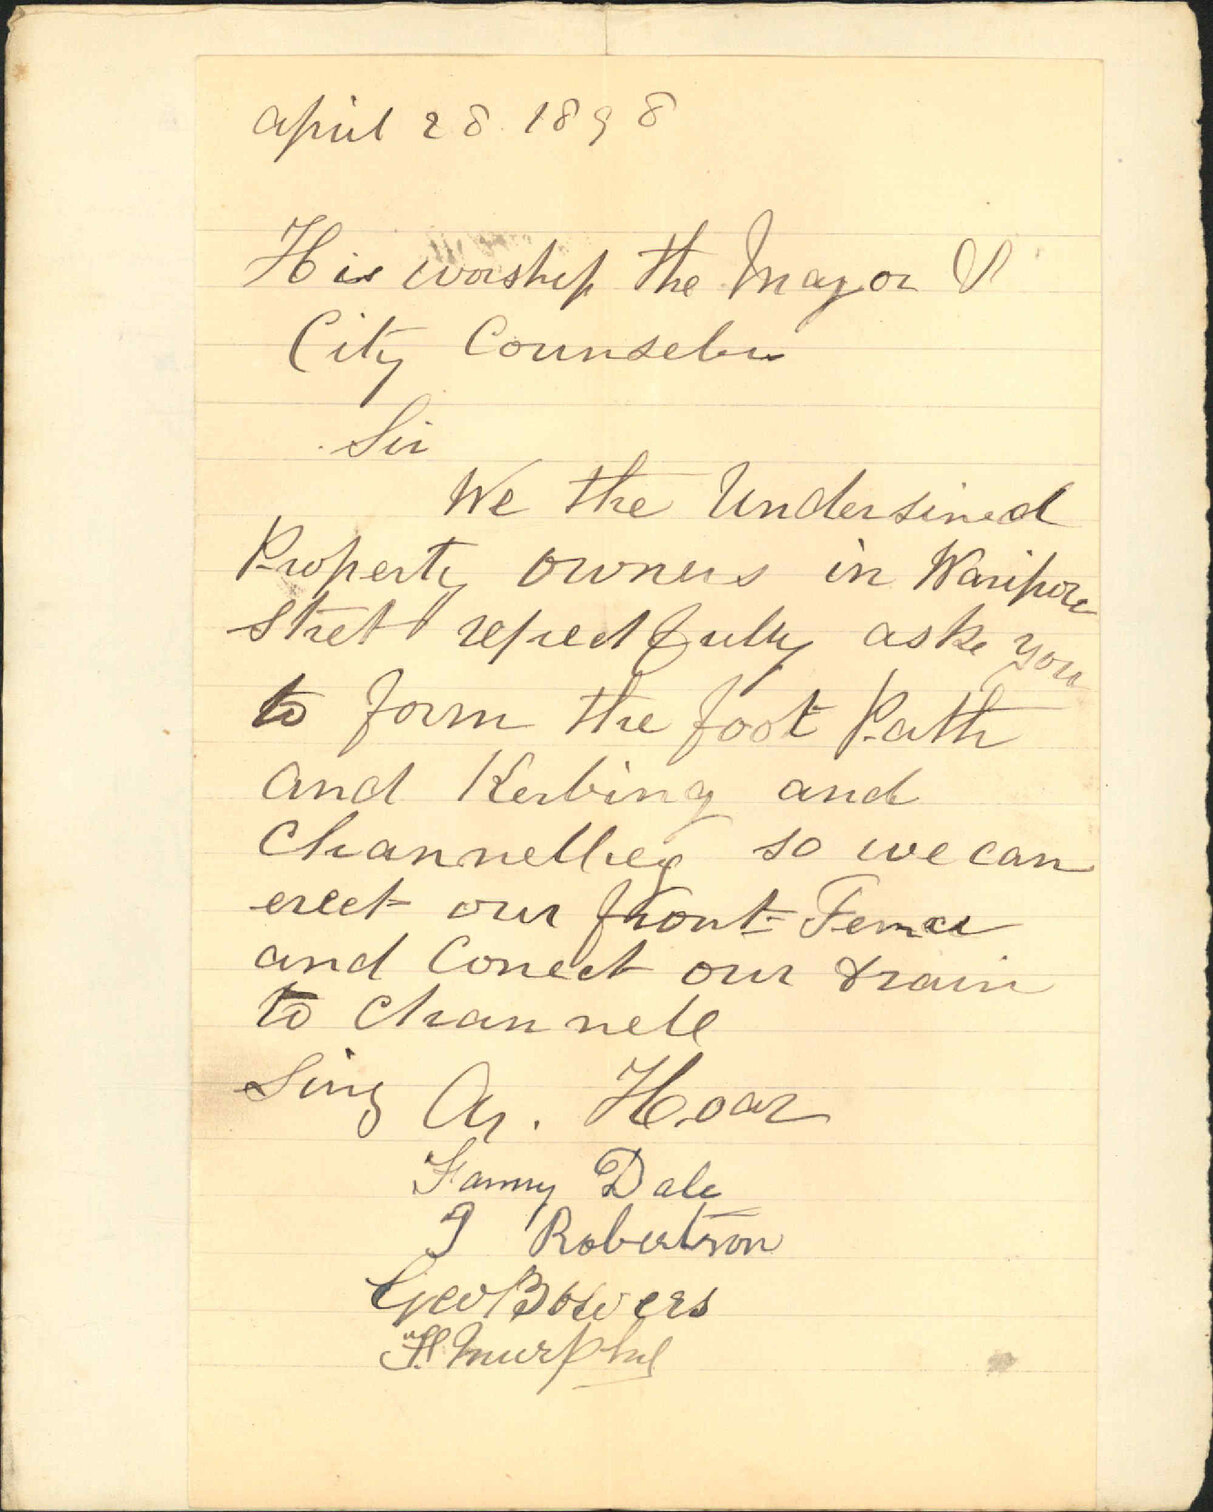 April 28 1898
His worship the Mayor &
City Counselers
Sir
We the Undersined
Property owners in Waripori
Street repectfully aske you
to form the foot Path
and Kerbing and
Channelleg so we can
erect our front Fence
and Conect our drain
to Channell
Sing Ar. Hoar
Fanny Dale
J Robertson
Geo Bowers
H Murphy